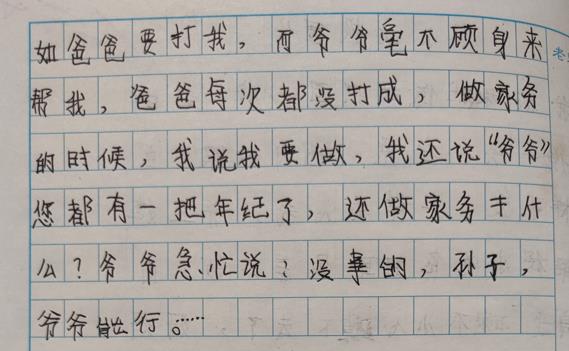 如爸爸要打我，而爷爷毫不顾身来
帮我，爸爸每次都没打成，做家务
的时候，我说我要做，我还说“爷爷”
您都有一把年纪了，还做家务干什
么？爷爷急忙说：没事的，孙子，
爷爷能行。……